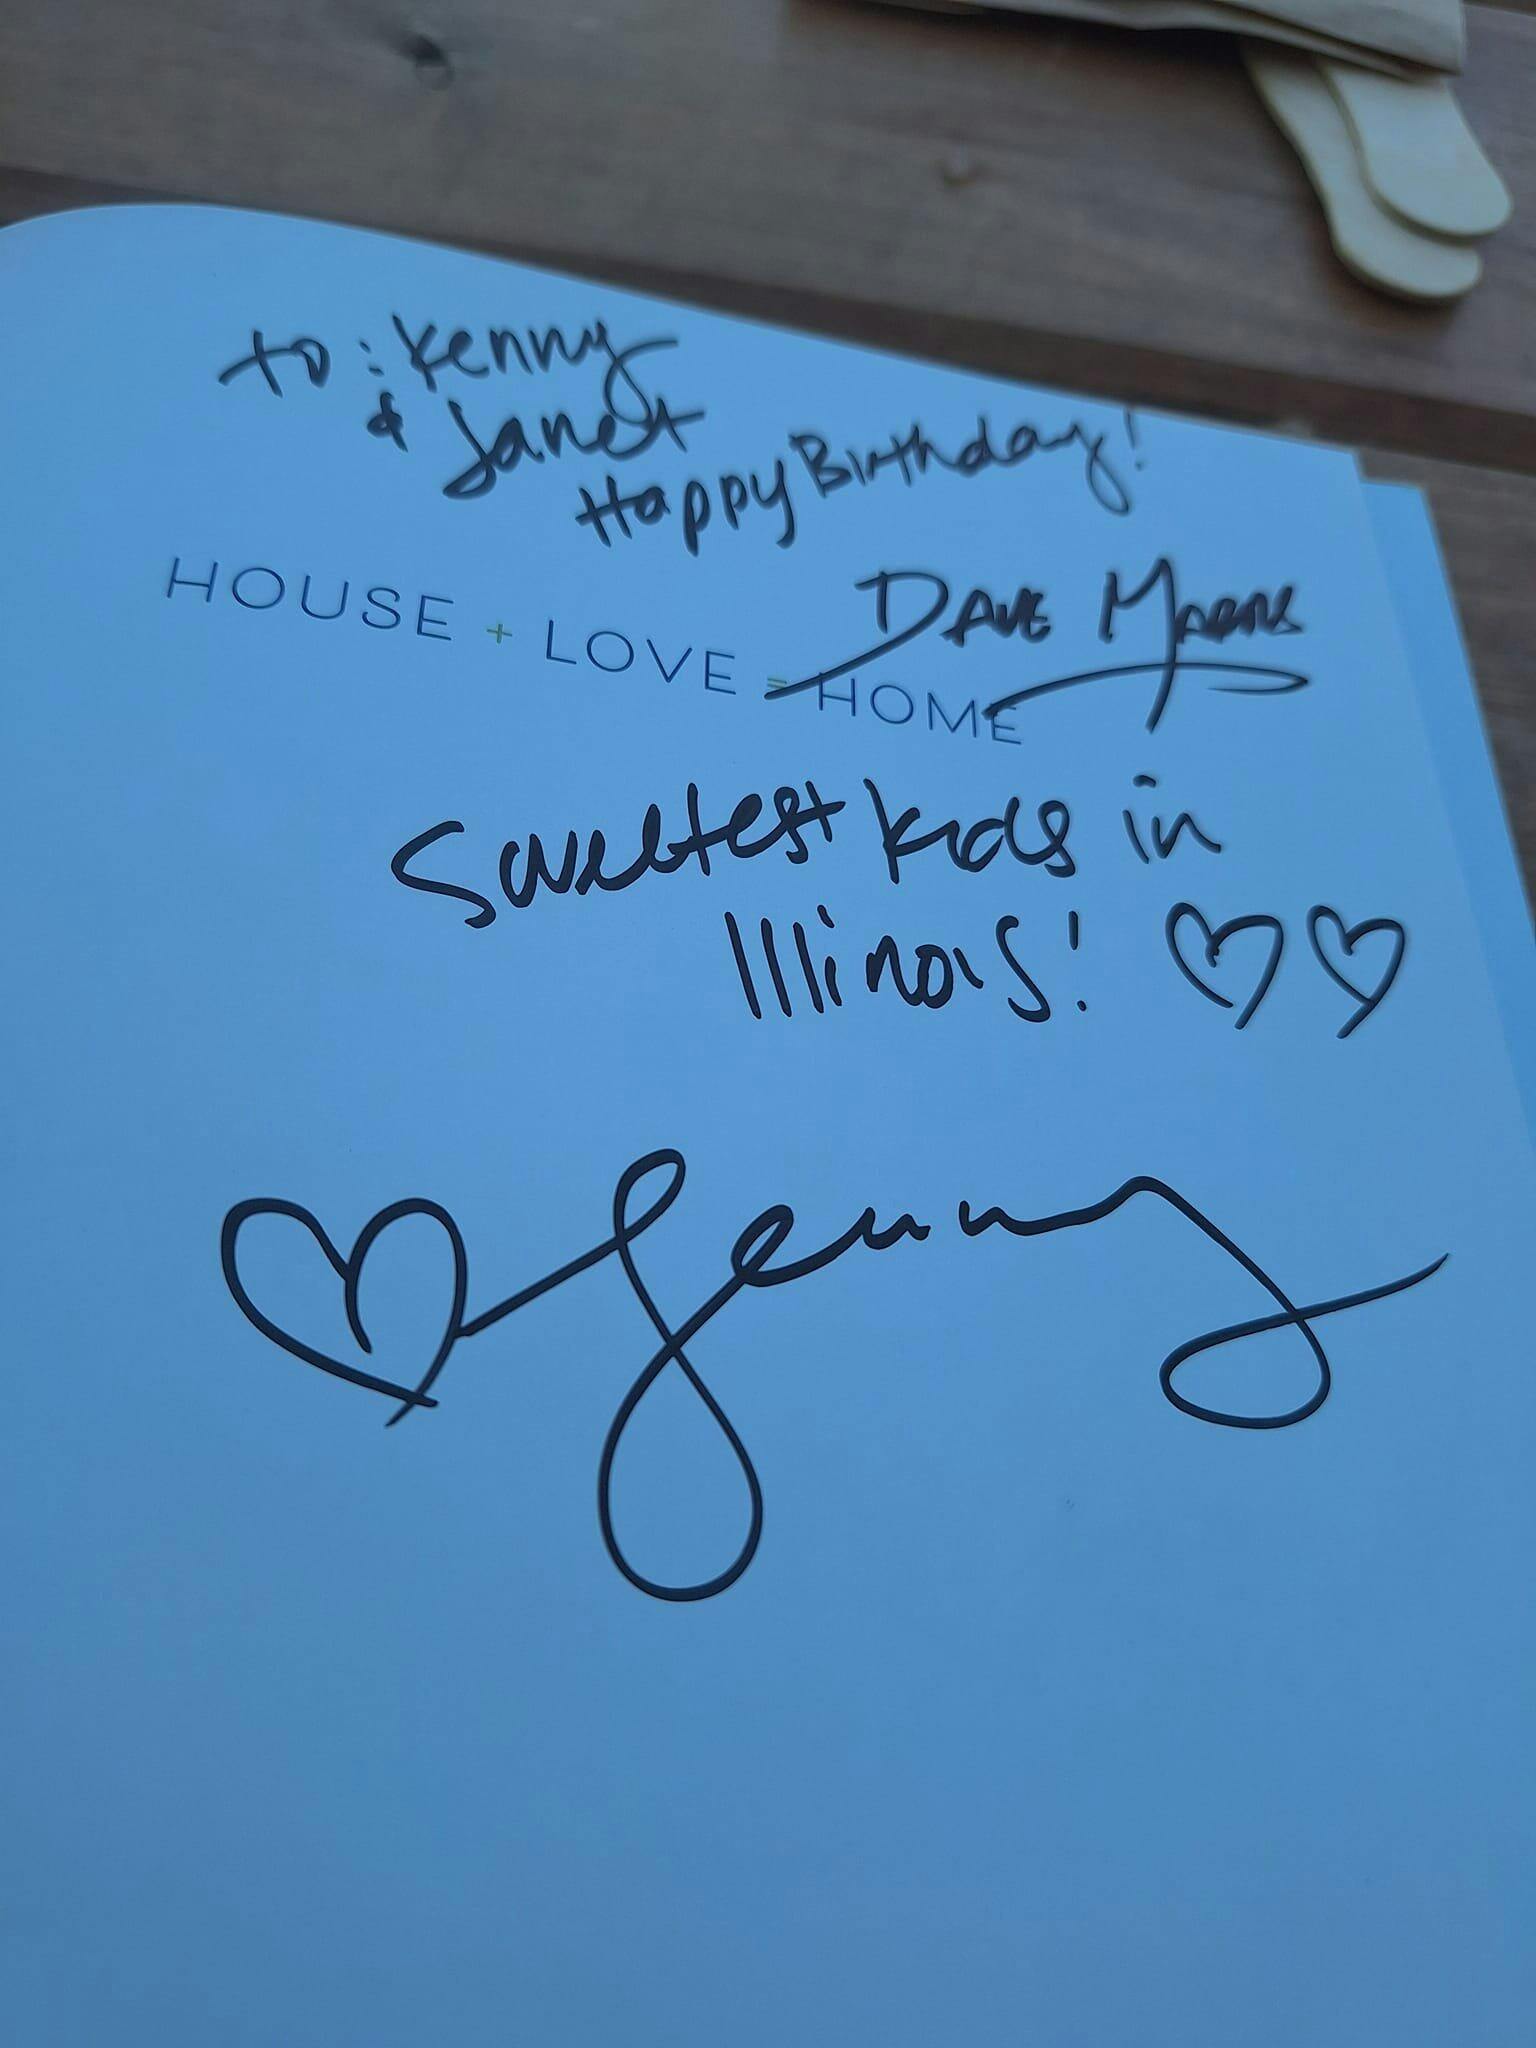 to: Kenny
& Janet
Happy Birthday!
DAVE MARRS
HOUSE + LOVE = HOME
Sweetest kids in
Illinois! ♡♡
♡ Jenny